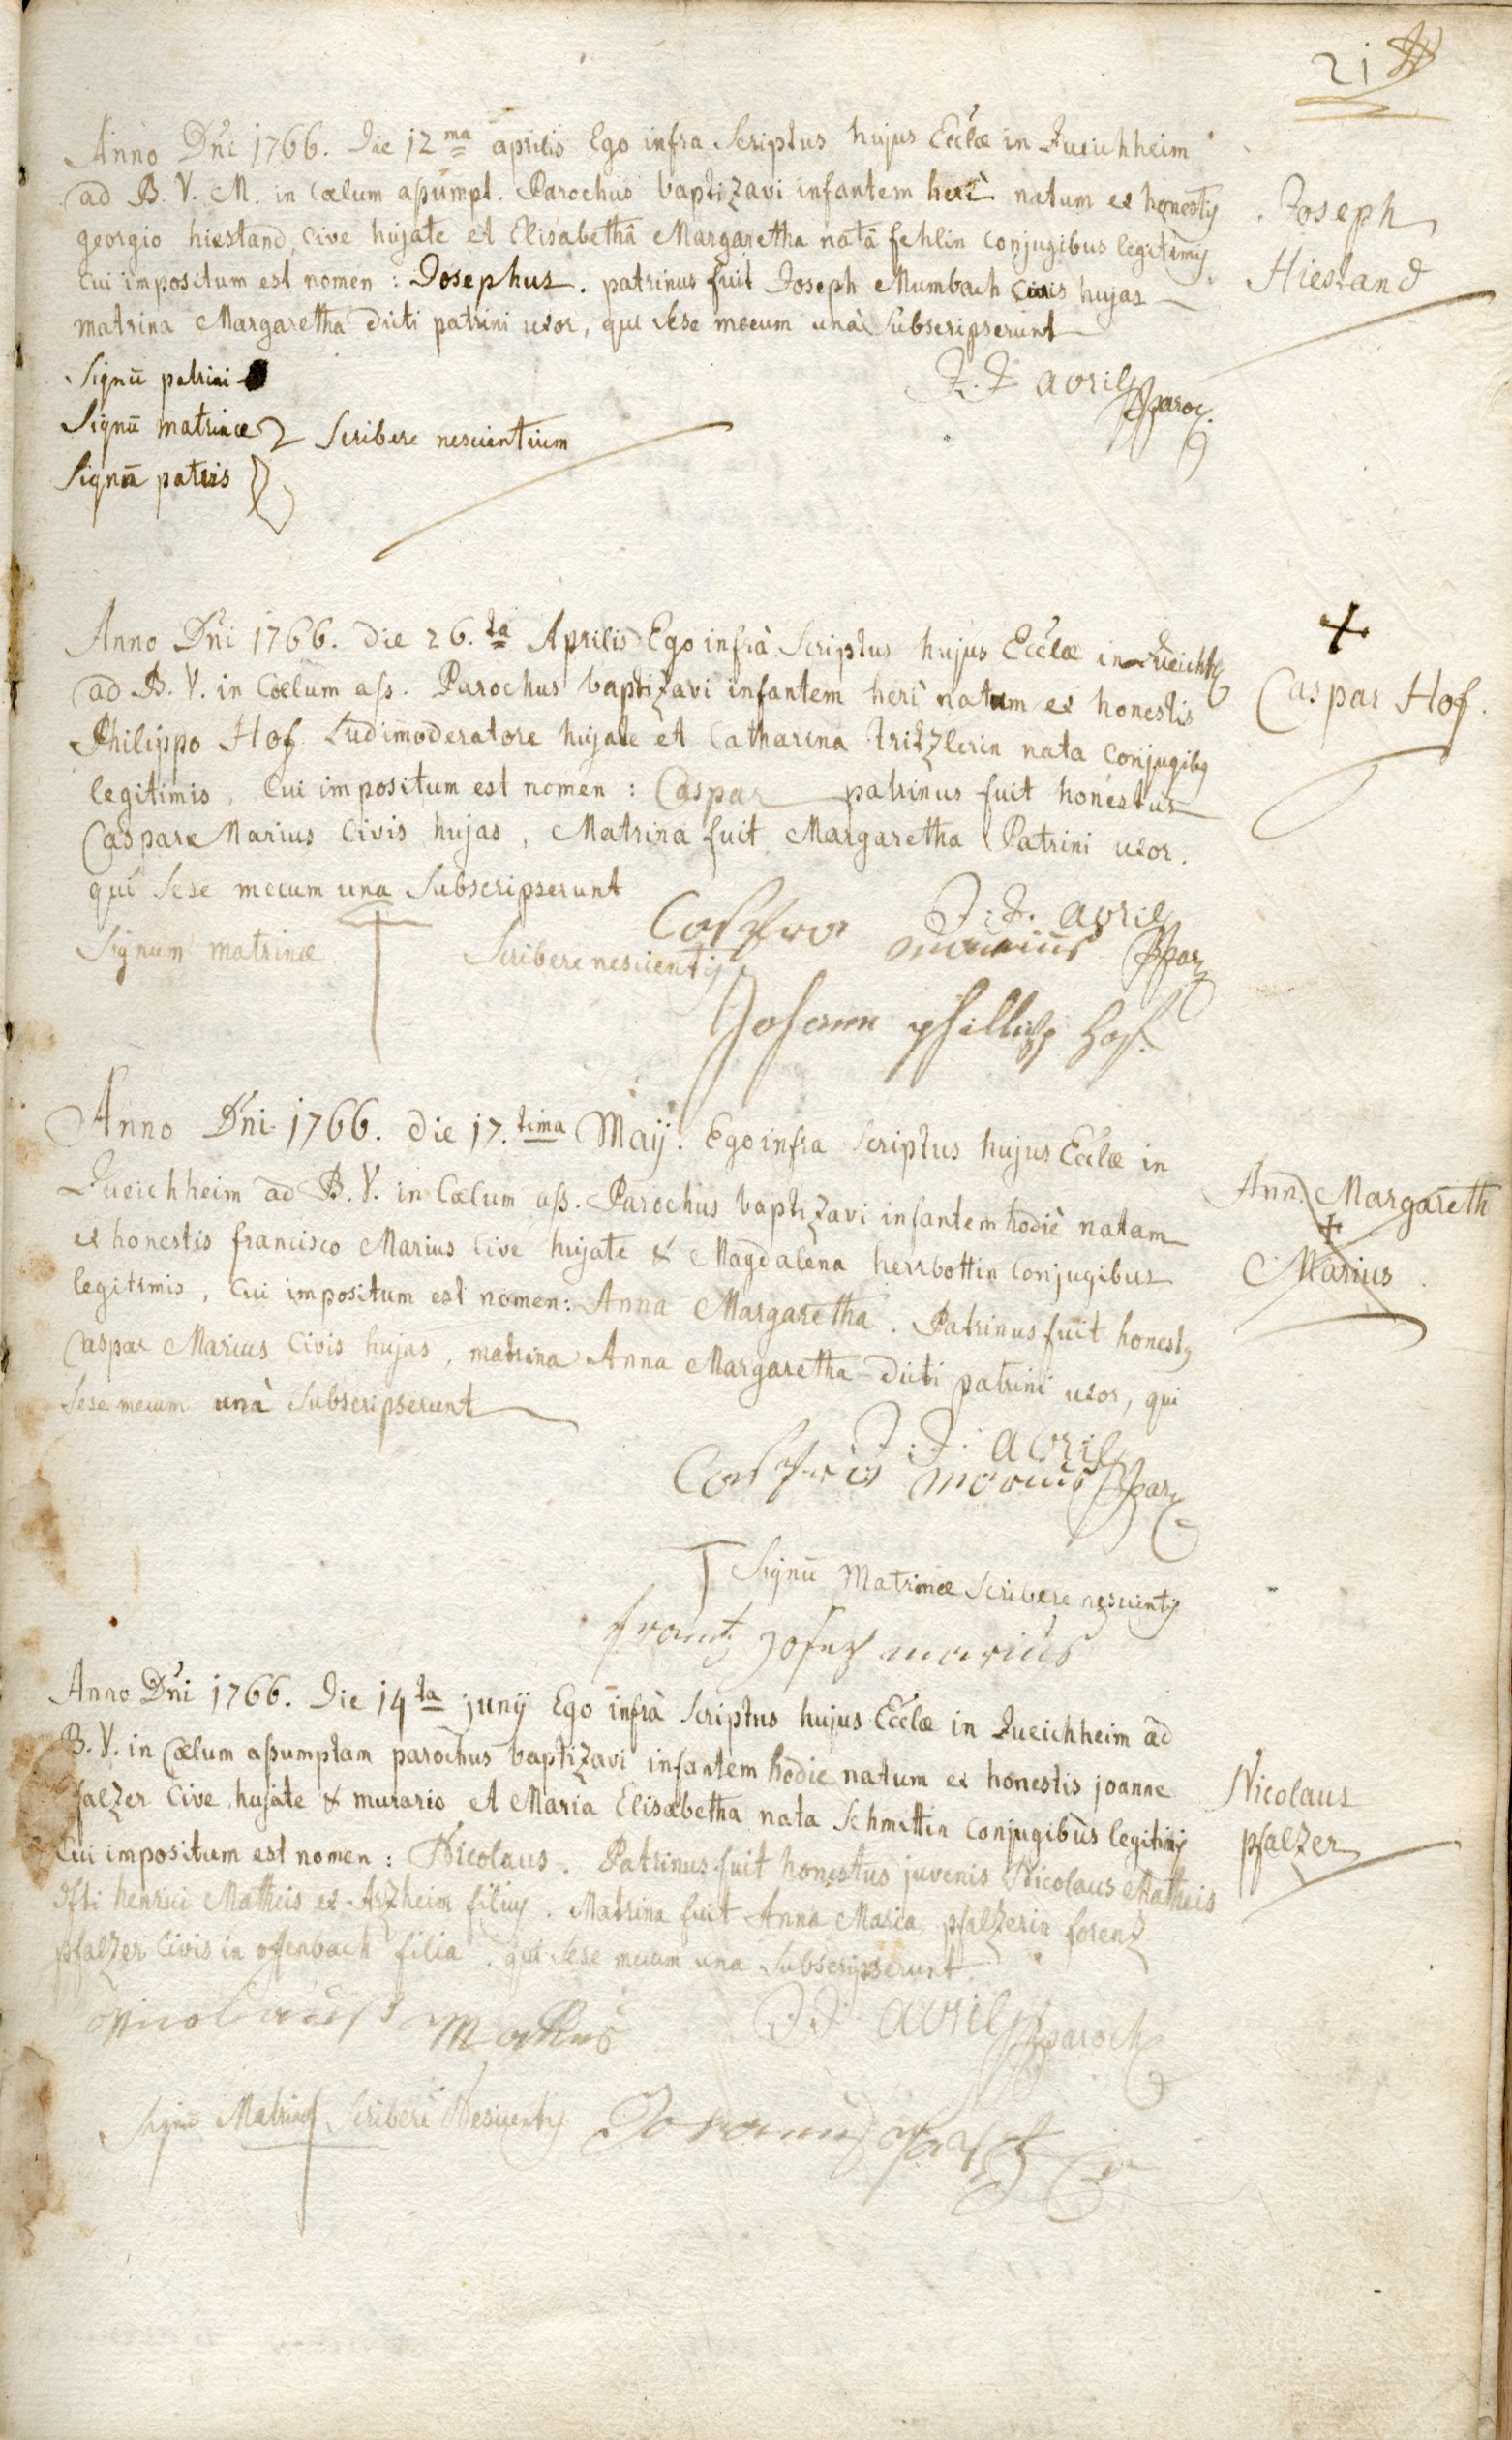 21
Anno Dñi 1766. Die 12ma aprilis Ego infra Scriptus hujus Ecclæ in Queichheim
ad B. V. M. in Cælum aßumpt. Parochus baptizavi infantem heri natum ex honestis
georgio hiestand Cive hujate et Elisabethâ Margaretha natâ fehlin Conjugibus legitimis
Cui impositum est nomen : Josephus. patrinus fuit Joseph Mumbach Civis hujas
matrina Margaretha dicti patrini uxor, qui sese mecum unà Subscripserunt
Joseph
Hiestand
Signū patrini
J. J. avril
paroc.
Signū matrinæ Scribere nescientium
Signū patris
Anno Dñi 1766. die 26.ta Aprilis Ego infrà Scriptus hujus Ecclæ in Queichh
ad B. V. in Cælum aß. Parochus baptizavi infantem heri natum ex honestis
Philippo Hof Ludimoderatore hujate et Catharina tritzlerin nata Conjugibus
legitimis, Cui impositum est nomen : Caspar patrinus fuit honestus
Caspar Marius Civis hujas, Matrina fuit Margaretha Patrini uxor.
qui Sese mecum una Subscripserunt
Caspar Hof.
J. J. avril
par
Signum matrinæ Scribere nescientis
marius
Johann phillipp Hof.
Anno Dñi 1766. die 17.tima Maij. Ego infra Scriptus hujus Ecclæ in
Queichheim ad B. V. in Cælum aß. Parochus baptizavi infantem hodiè natam
ex honestis francisco Marius Cive hujate & Magdalena herrbottin Conjugibus
legitimis, Cui impositum est nomen: Anna Margaretha. Patrinus fuit honestus
Caspar Marius Civis hujas, matrina Anna Margaretha dicti patrini uxor, qui
Sese mecum unà Subscripserunt
Ann. Margareth
Marius
J. J. avril
par
marius
Signū Matrinæ Scribere nescientis
frantz Josep marius
Anno Dñi 1766. Die 14ta junij Ego infrà Scriptus hujus Ecclæ in Queichheim ad
B. V. in Cælum aßumptam parochus baptizavi infantem hodie natum ex honestis joanne
pfalzer Cive hujate & murario et Maria Elisabetha nata Schmittin Conjugibùs legitimis
Cui impositum est nomen : Nicolaus. Patrinus fuit honestus juvenis Nicolaus Matheis
henrici Matheis ex Arzheim filius. Matrina fuit Anna Maria pfalzerin
pfalzer Civis in offenbach filia. qui Sese mecum una Subscripserunt
Nicolaus
pfalzer
J. J. avril
paroch
Signū Matrinæ Scribere Nescientis